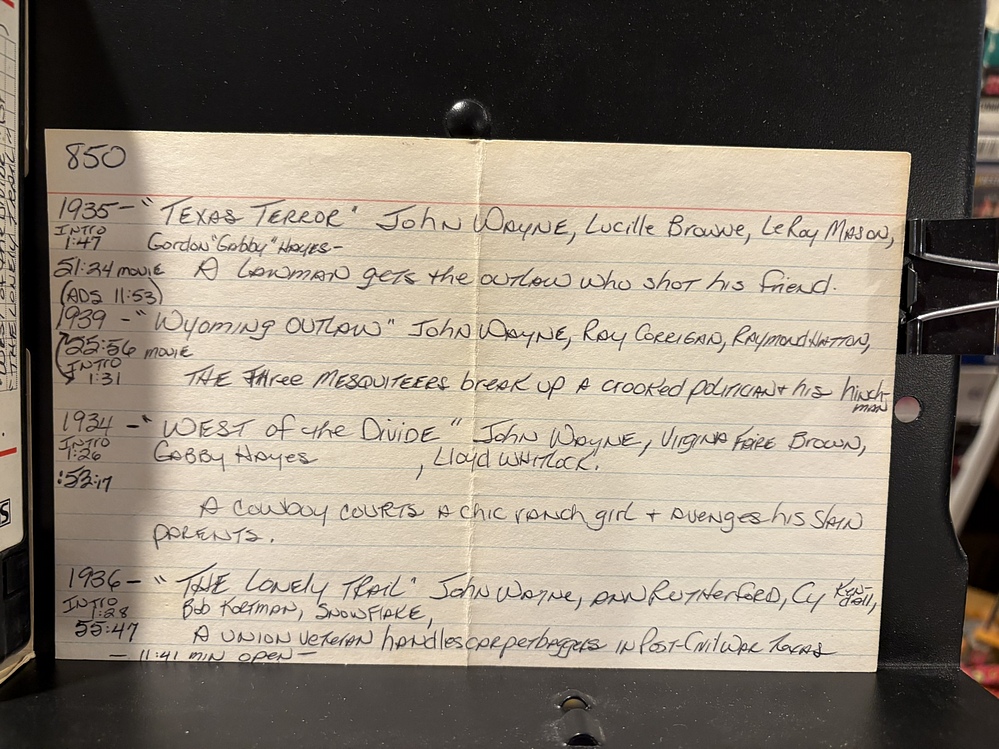 850
1935 - "TEXAS TERROR" JOHN WAYNE, Lucille Browne, LeRoy MASON,
INTRO
1:47 Gordon "Gabby" HAYES -
51:24 MOVIE A LAWMAN gets the outlaw who shot his friend.
(ADS 11:53)
1939 - "WYOMING OUTLAW" JOHN WAYNE, RAY CORRIGAN, RAYMOND HATTON,
55:56 MOVIE
INTRO
1:31 THE Three MESQUITEERS break up A crooked politician + his hinch-
MAN
1934 - "WEST of the Divide" John Wayne, VIRGINA FAIRE BROWN,
INTRO
1:26 GABBY HAYES, Lloyd WHITLOCK.
:53:17
A cowboy courts A chic ranch girl + AVENGES his SlAIN
PARENTS.
1936 - "THE LONELY TRAIL" John WAYNE, ANN RUTHerford, Cy Ken-
dall,
INTRO
1:28 Bob KORTMAN, SNOWFLAKE,
55:47 A UNION veteran handles carpetbaggers IN Post-Civil WAR Texas
- 11:41 MIN OPEN -
THE LONELY TRAIL